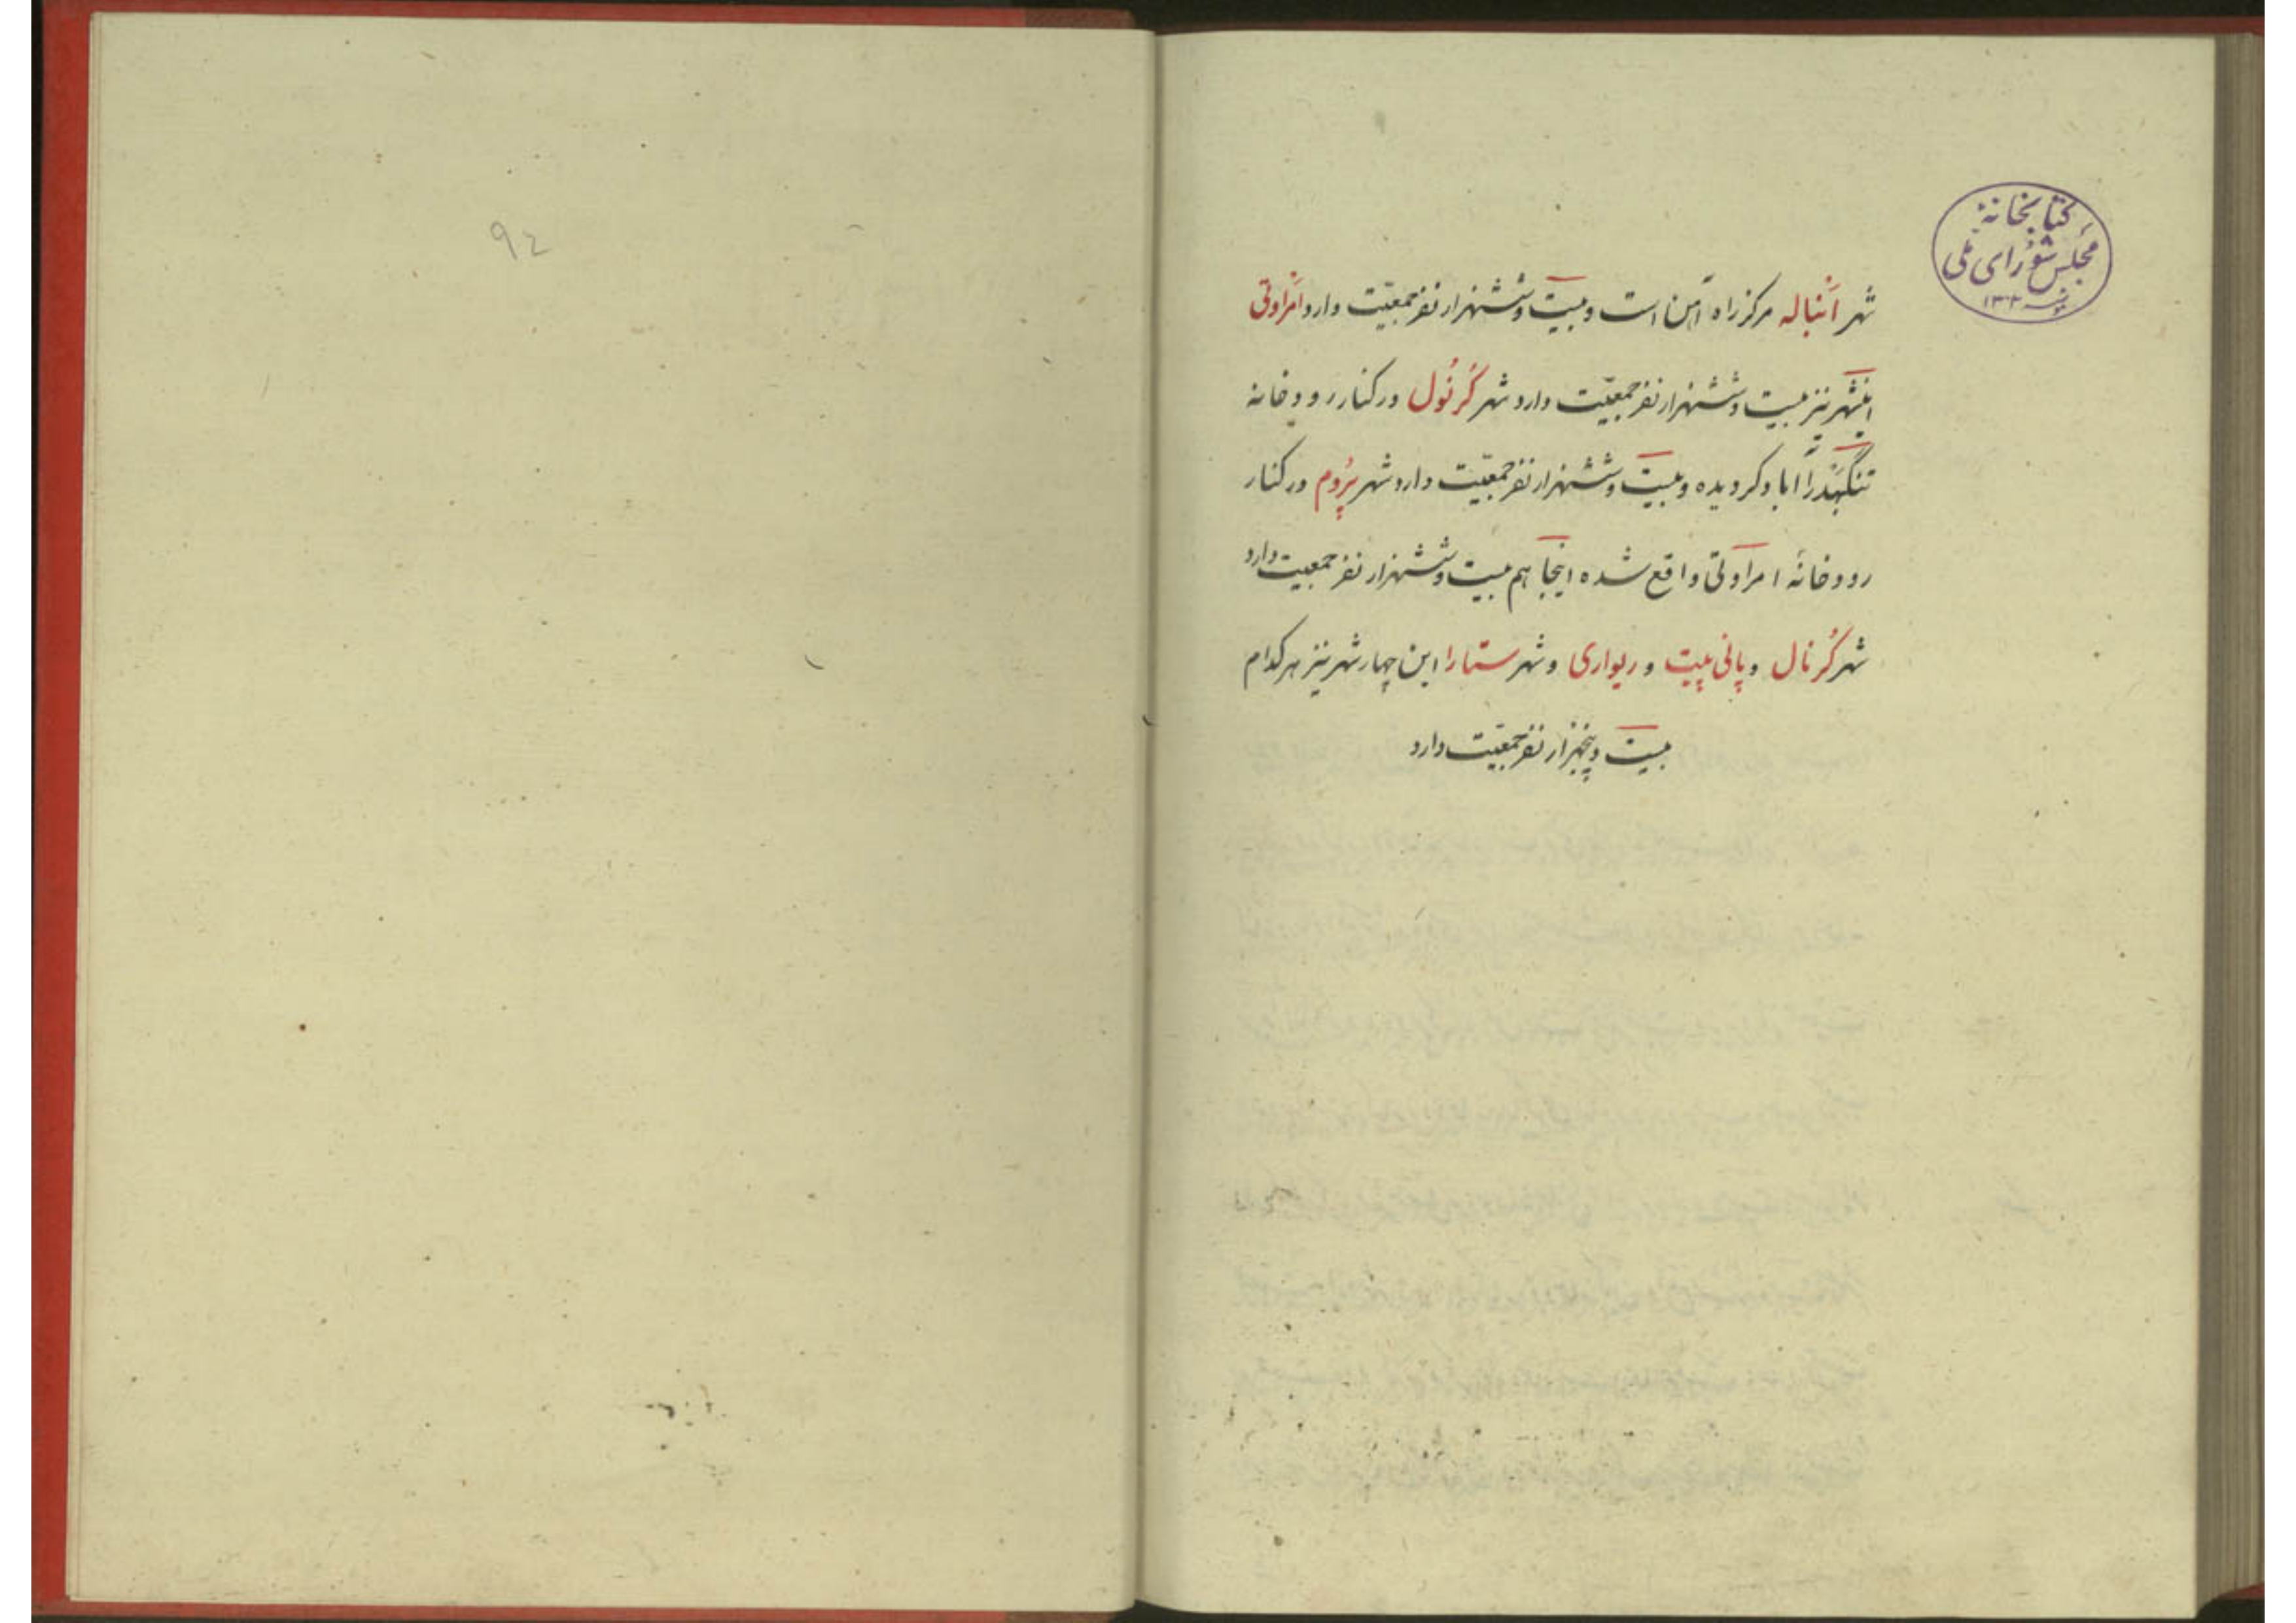 کتابخانهٔ
مجلس شورای ملی
۱۳۰۲
شهر اَنباله مرکز راه آهن است و بیست و ششهزار نفر جمعیّت دارد امراوتی
اینشهر نیز بیست و ششهزار نفر جمعیّت دارد شهر کُرنُول در کنار رودخانهٔ
تنگبَهَدرا آباد گردیده و بیست و ششهزار نفر جمعیّت دارد شهر پرُوم در کنار
رودخانهٔ امراوتی واقع شده اینجا هم بیست و ششهزار نفر جمعیت دارد
شهر کُرنال و پانی پیت و ریواری و شهر ستارا این چهار شهر نیز هر کدام
بیست و پنجهزار نفر جمعیّت دارد
۹۴